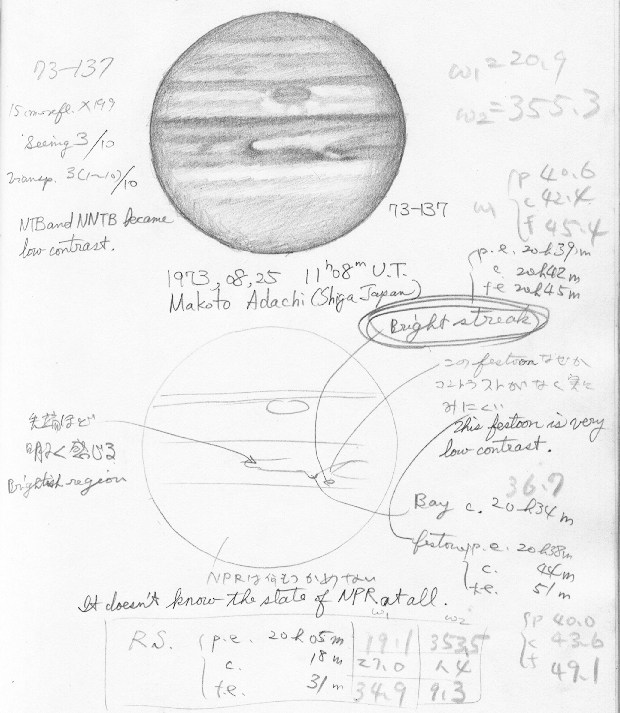 73-137
15 ㎝ refl. ×199
Seeing 3/10
transp. 3(1~10)/10
NTB and NNTB became
low contrast.
ω1=20.9
ω2=355.3
73-137
ω1
p 40.6
c 42.4
f 45.4
p.e. 20h39m
c. 20h42m
f.e 20h45m
1973,08,25 11h08m U.T.
Makoto Adachi (Shiga Japan)
Bright streak
このfestoonなぜか
コントラストがなく実に
みにくい
This festoon is very
low contrast.
先端ほど
明るく感じる
Brightish region
36.7
Bay c. 20h34m
festoon p.e. 20h38m
c. 44m
f.e. 51m
NPRは何もつかめない
It doesn't know the state of NPR at all.
ω1 ω2
R.S. p.e. 20h05m 19.1 353.5
c. 18m 27.0 1.4
f.e. 31m 34.9 9.3
p 40.0
c 43.6
f 49.1